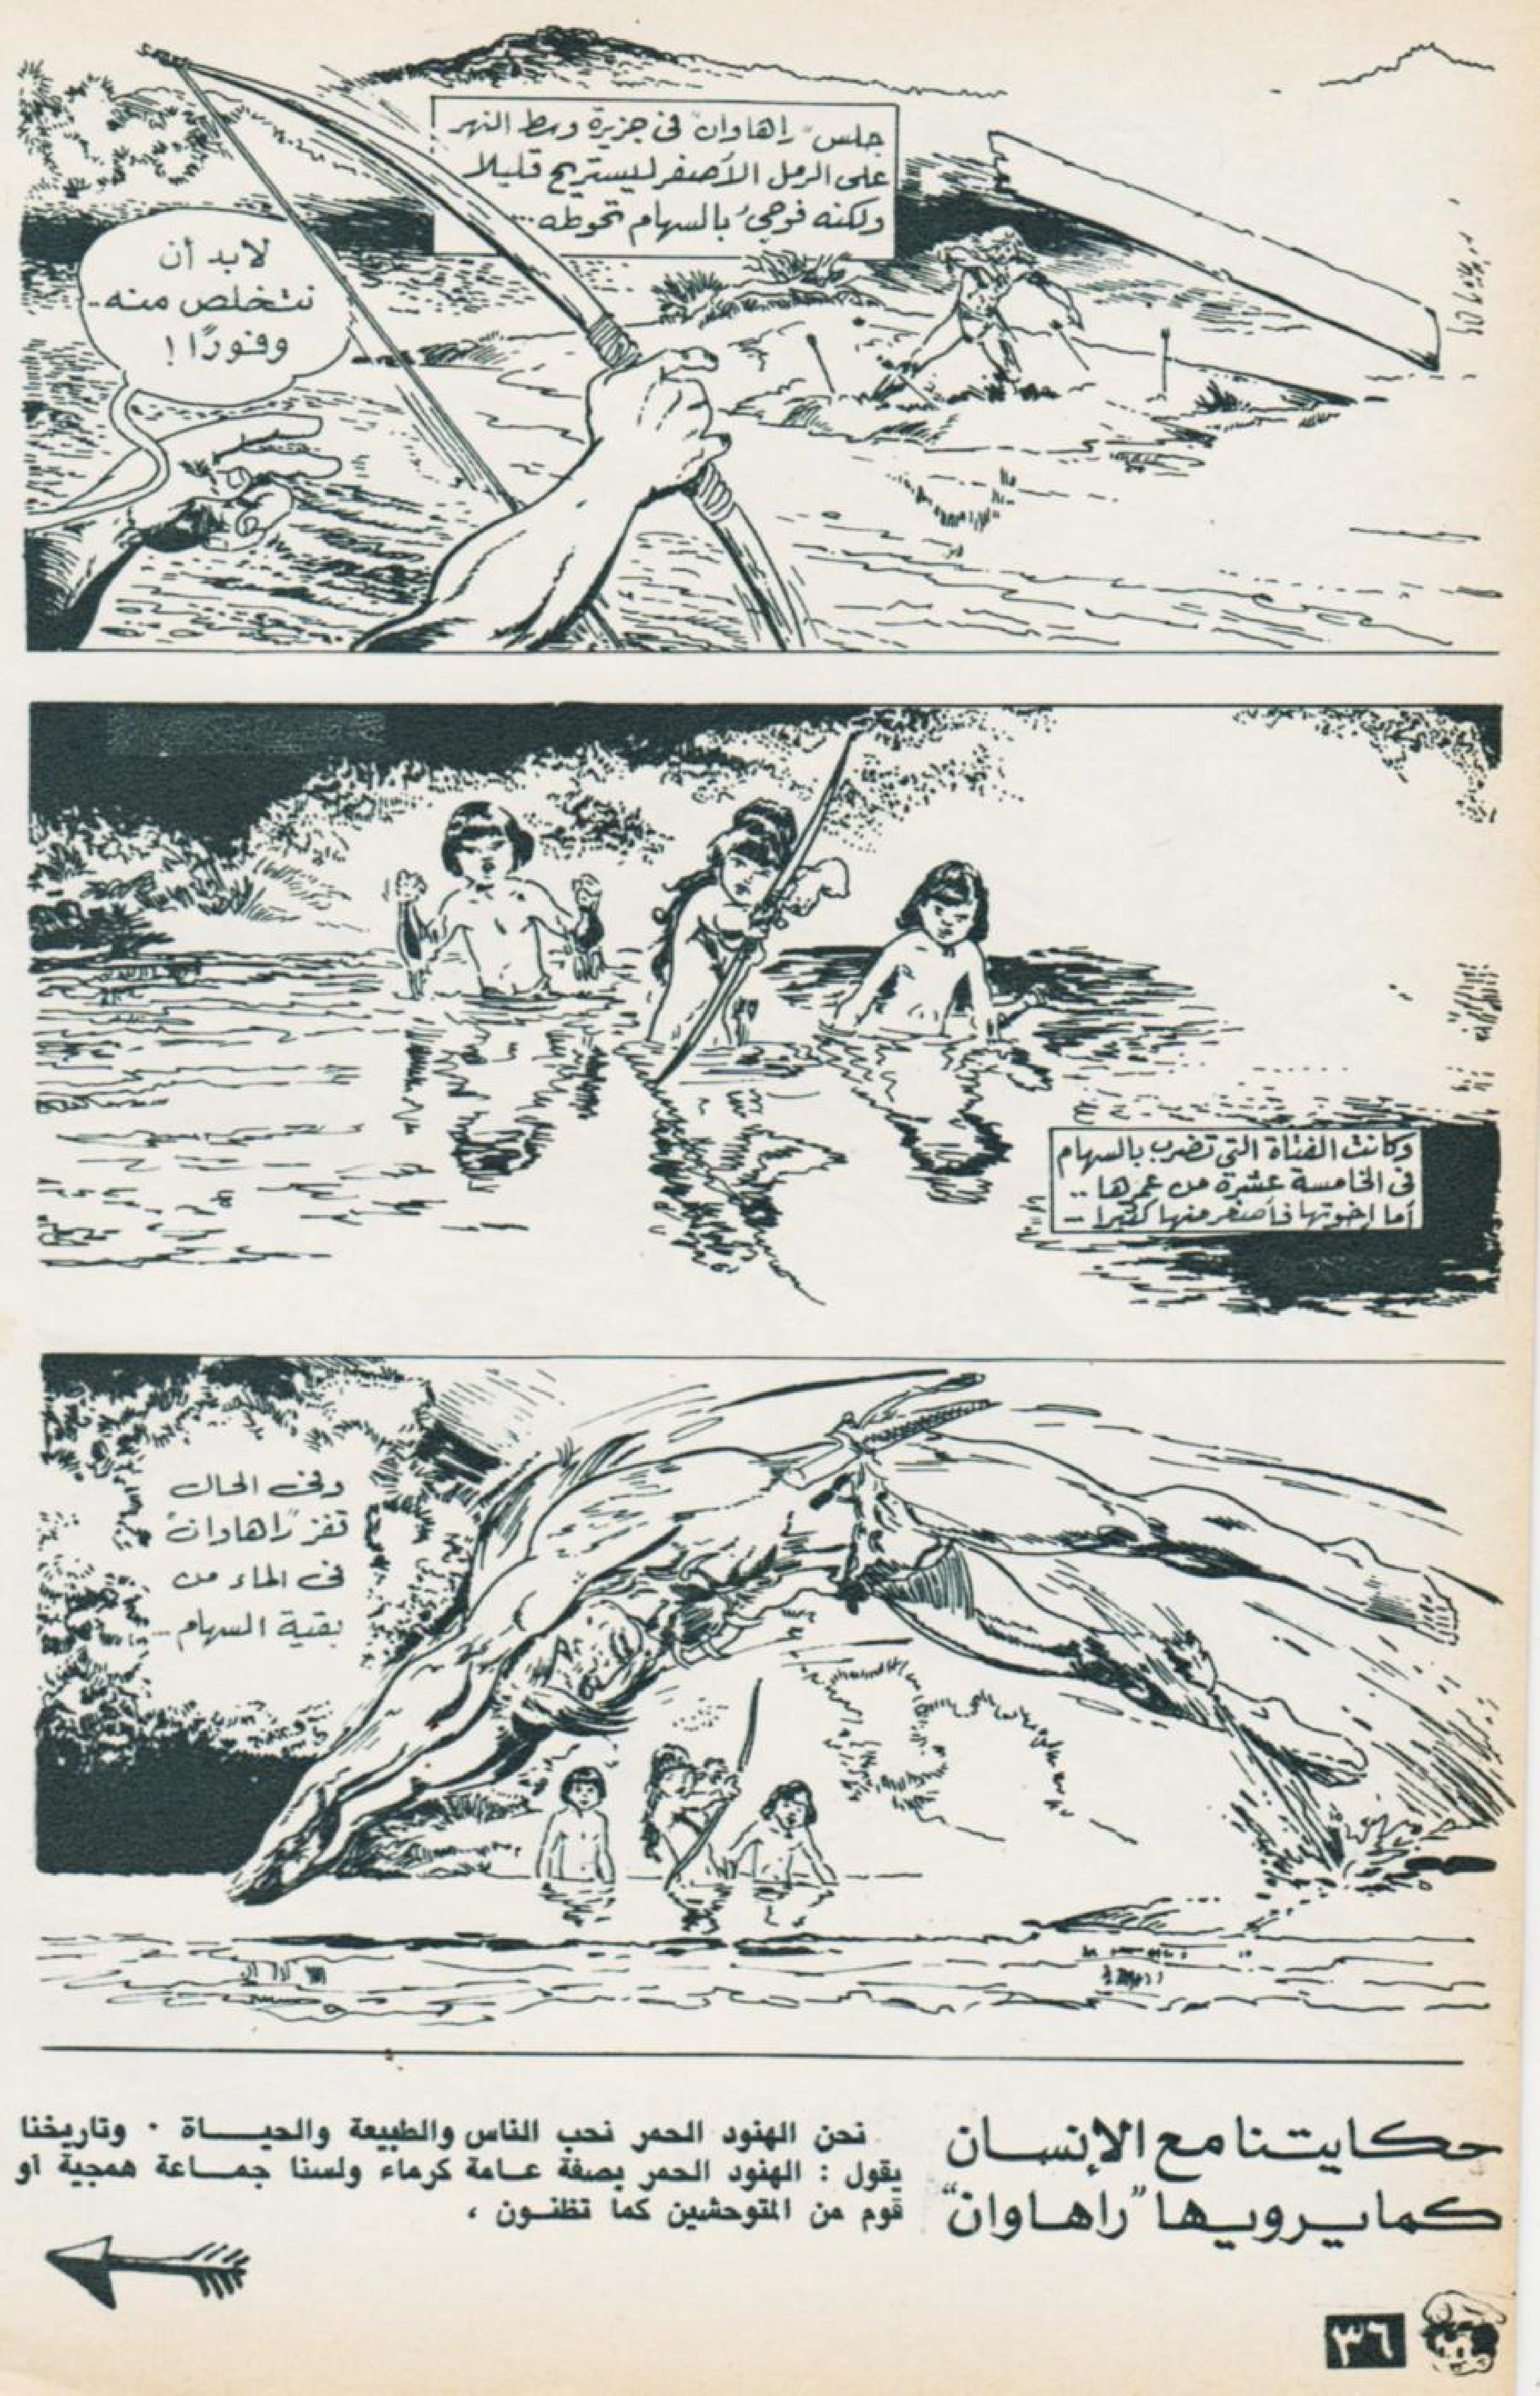 جلس "راهاوان" في جزيرة وسط النهر
على الرمل الأصفر ليستريح قليلا
ولكنه فوجئ بالسهام تحوطه...
لابد أن
نتخلص منه..
وفورًا !
وكانت الفتاة التي تضرب بالسهام
في الخامسة عشرة من عمرها ..
أما إخوتها فأصغر منها كثيرا ..
وفي الحال
قفز "راهاوان"
في الماء من
بقية السهام ...
حكايتنا مع الإنسان
كما يرويها "راهاوان"
نحن الهنود الحمر نحب الناس والطبيعة والحياة . وتاريخنا
يقول : الهنود الحمر بصفة عامة كرماء ولسنا جماعة همجية أو
قوم من المتوحشين كما تظنون ،
٣٦